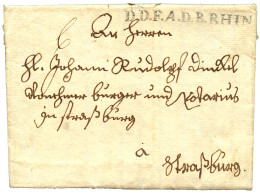 D.D.F.A.D.B.RHIN
6
An Herren
Hr. Johann Rudolph Dinckel
burger und Notarius
in straßburg
à
Straßburg.